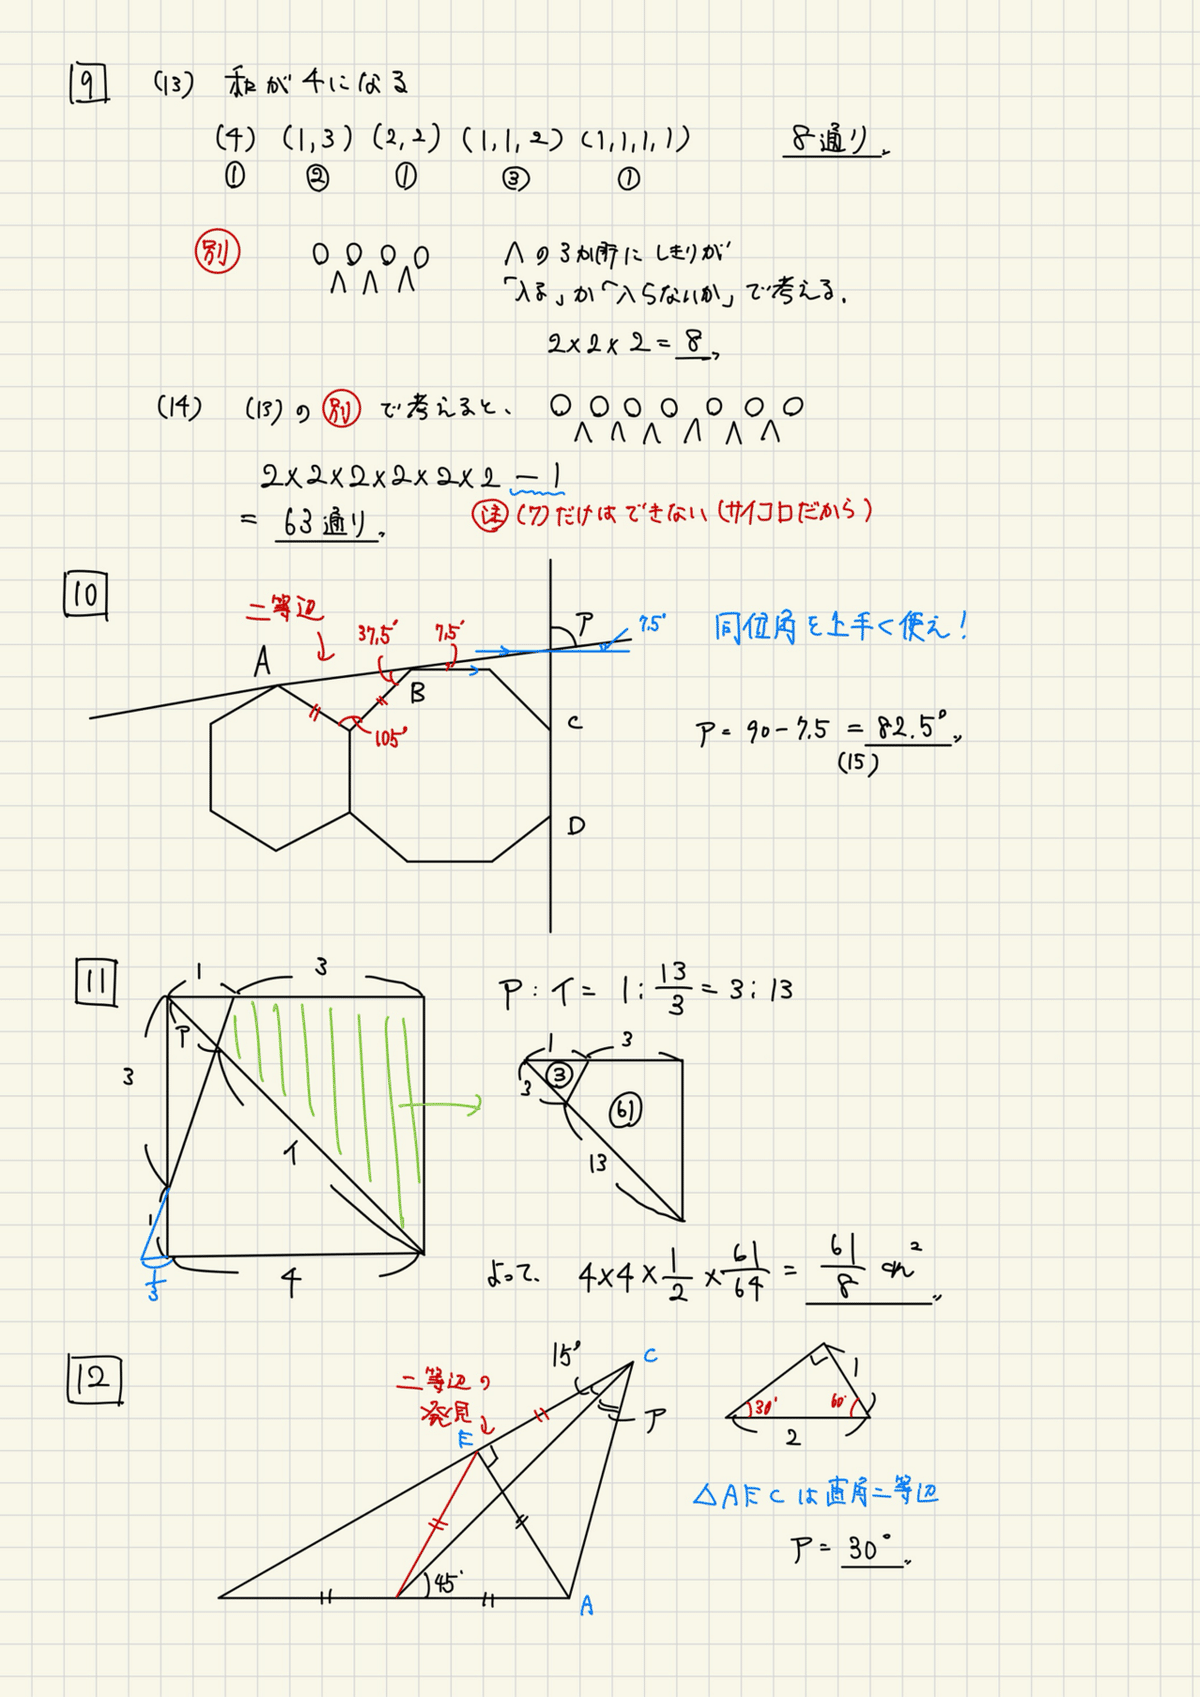 9 (13) 和が4になる
(4) (1,3) (2,2) (1,1,2) (1,1,1,1) 8通り
① ② ① ③ ①
別 ∧の3か所にしきりが
「入る」か「入らないか」で考える.
2×2×2=8
(14) (13)の別で考えると、
2×2×2×2×2×2-1
= 63通り 注 (7)だけはできない(サイコロだから)
10
二等辺 37.5° 7.5° ア 7.5° 同位角を上手く使え!
A B
105° C ア=90-7.5=82.5°
(15)
D
11 1 3 ア:イ=1:13/3=3:13
ア 1 3
3 3 ③
61
イ 13
1
1/3 4 よって、4×4×1/2×61/64=61/8 cm²
12 15° C
二等辺の
発見 ア 30° 60° 1
E 2
△AECは直角二等辺
ア=30°
45°
A